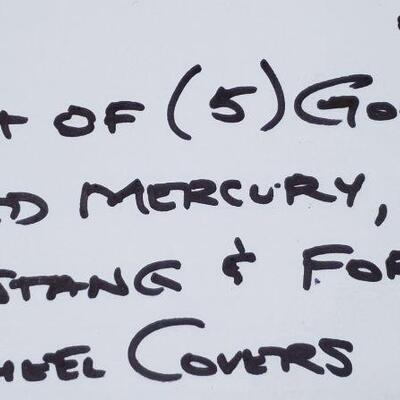 T OF (5) GO
ED MERCURY,
STANG & FOR
HEEL COVERS